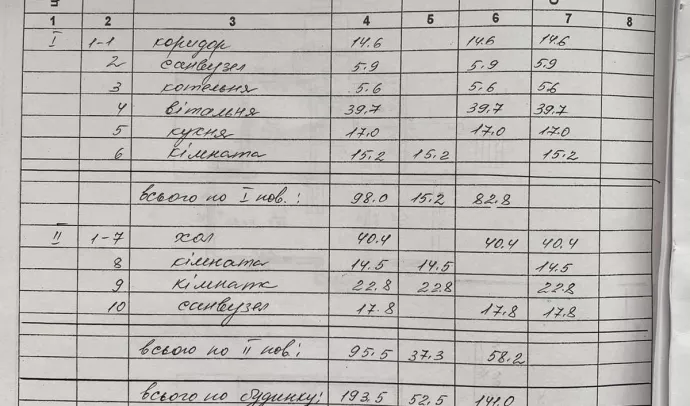 1 2 3 4 5 6 7 8
I 1-1 коридор 14.6 14.6 14.6
2 санвузел 5.9 5.9 5.9
3 котельня 5.6 5.6 5.6
4 вітальня 39.7 39.7 39.7
5 кухня 17.0 17.0 17.0
6 кімната 15.2 15.2 15.2
всього по I пов.: 98.0 15.2 82.8
II 1-7 хол 40.4 40.4 40.4
8 кімната 14.5 14.5 14.5
9 кімната 22.8 22.8 22.8
10 санвузел 17.8 17.8 17.8
всього по II пов: 95.5 37.3 58.2
всього по будинку: 193.5 52.5 141.0